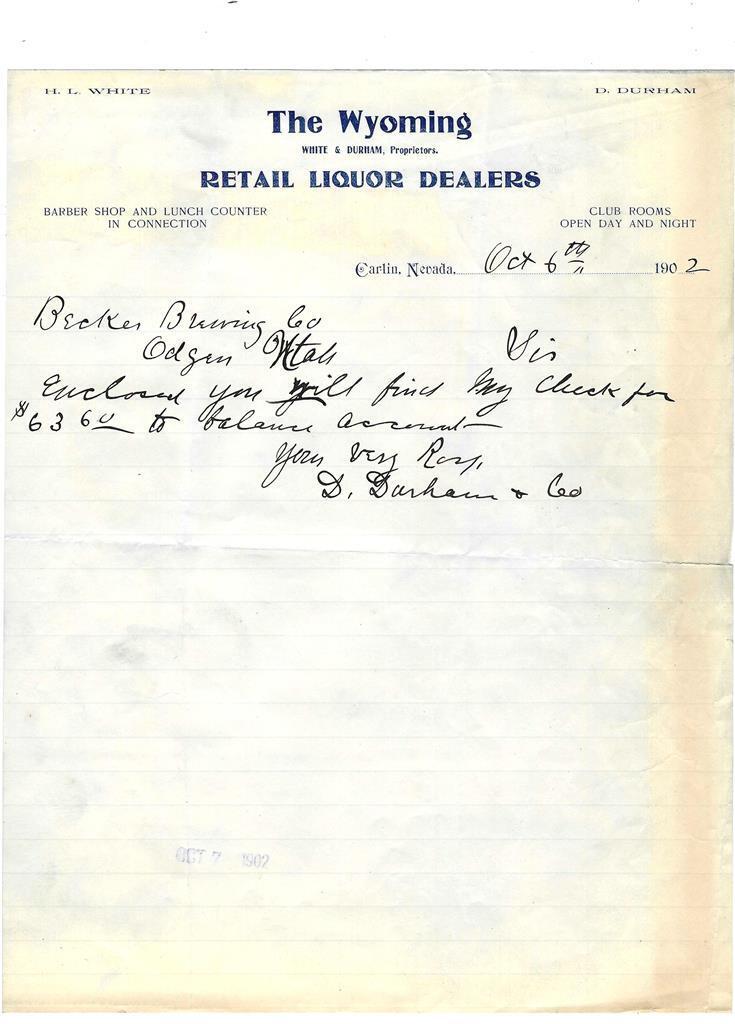 H. L. WHITE
D. DURHAM
The Wyoming
WHITE & DURHAM, Proprietors.
RETAIL LIQUOR DEALERS
BARBER SHOP AND LUNCH COUNTER
IN CONNECTION
CLUB ROOMS
OPEN DAY AND NIGHT
Carlin, Nevada. Oct 6th 1902
Becker Brewing Co
Odgen Utah Sir
Enclosed you will find My Check for
$63 60 to balance account
Yours Very Resp,
D. Durham & Co
OCT 7 1902